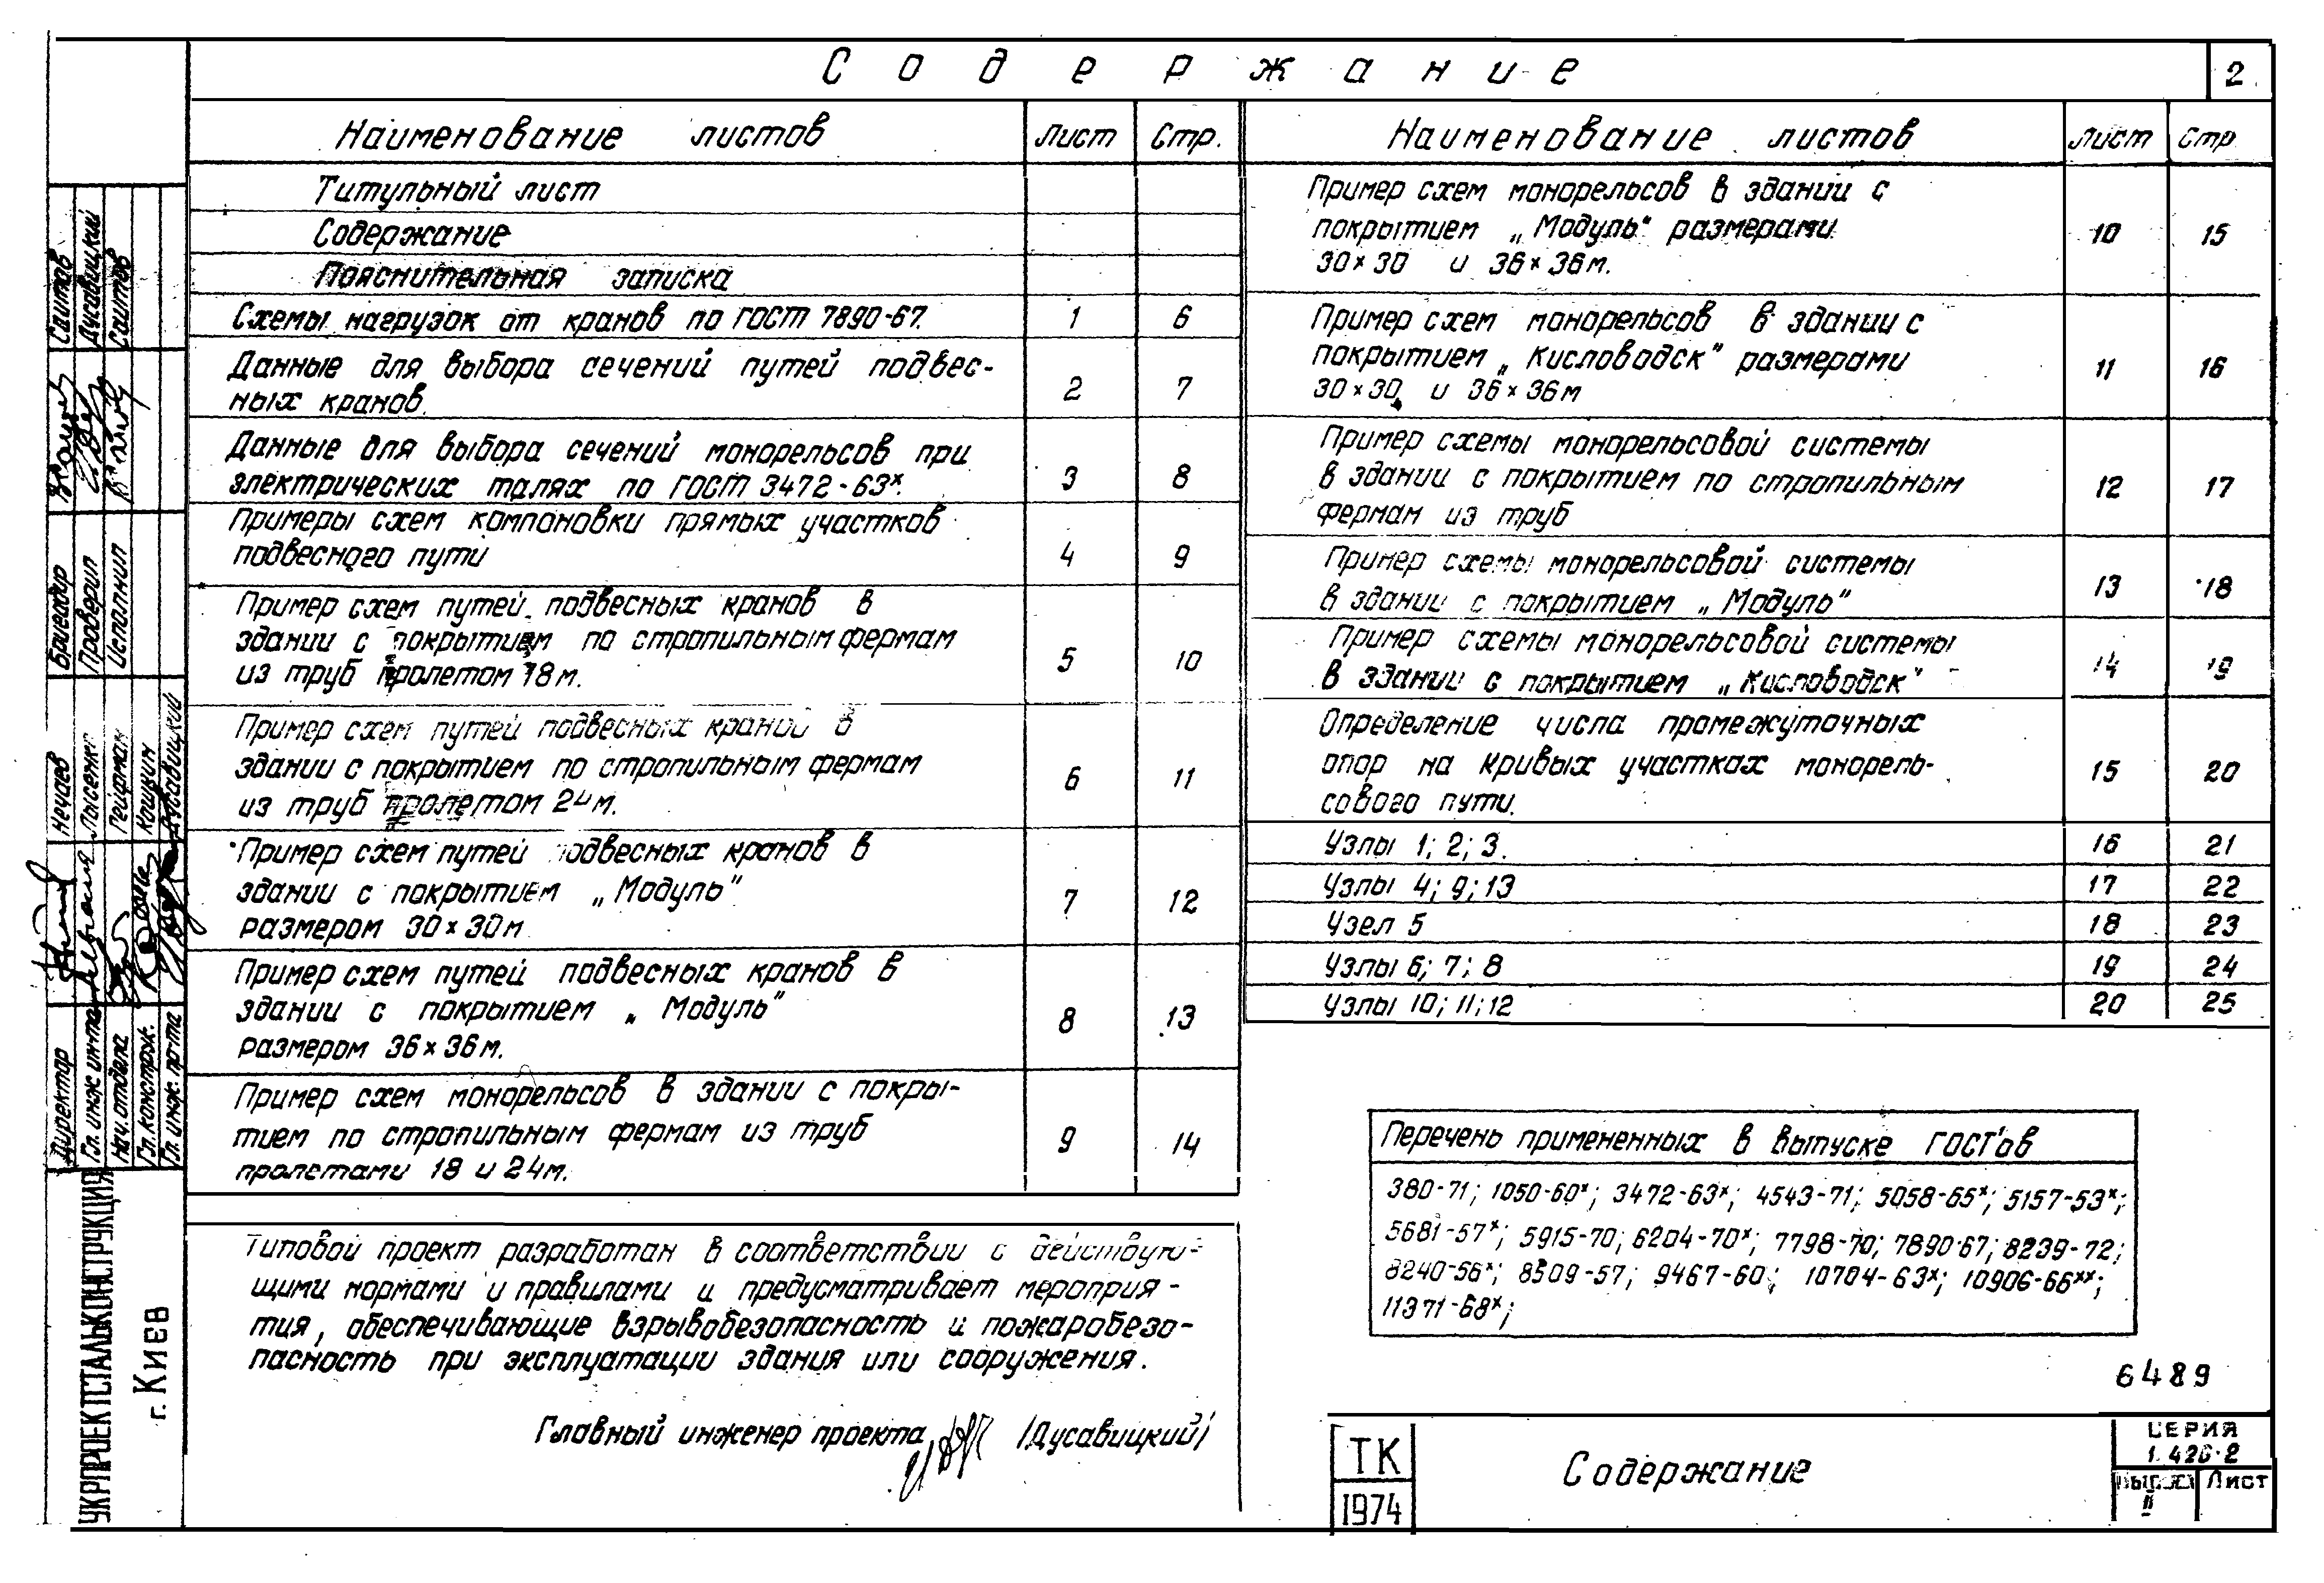 Содержание
2
Наименование листов Лист Стр.
Титульный лист
Содержание
Пояснительная записка
Схемы нагрузок от кранов по ГОСТ 7890-67. 1 6
Данные для выбора сечений путей подвес-
ных кранов. 2 7
Данные для выбора сечений монорельсов при
электрических талях по ГОСТ 3472-63х. 3 8
Примеры схем компоновки прямых участков
подвесного пути 4 9
Пример схем путей подвесных кранов в
здании с покрытием по стропильным фермам
из труб пролетом 18м. 5 10
Пример схем путей подвесных краний в
здании с покрытием по стропильным фермам
из труб пролетом 24м. 6 11
Пример схем путей подвесных кранов в
здании с покрытием „Модуль"
размером 30×30м 7 12
Пример схем путей подвесных кранов в
здании с покрытием „Модуль"
размером 36×36м. 8 13
Пример схем монорельсов в здании с покры-
тием по стропильным фермам из труб
пролетами 18 и 24м. 9 14
Наименование листов Лист Стр
Пример схем монорельсов в здании с
покрытием „Модуль" размерами
30×30 и 36×36м. 10 15
Пример схем монорельсов в здании с
покрытием „Кисловодск" размерами
30×30 и 36×36м 11 16
Пример схемы монорельсовой системы
в здании с покрытием по стропильным
фермам из труб 12 17
Пример схемы монорельсовой системы
в здании с покрытием „Модуль" 13 18
Пример схемы монорельсовой системы
в здании с покрытием „Кисловодск" 14 19
Определение числа промежуточных
опор на кривых участках монорель-
сового пути. 15 20
Узлы 1; 2; 3. 16 21
Узлы 4; 9; 13 17 22
Узел 5 18 23
Узлы 6; 7; 8 19 24
Узлы 10; 11; 12 20 25
Типовой проект разработан в соответствии с действую-
щими нормами и правилами и предусматривает мероприя-
тия, обеспечивающие взрывобезопасность и пожаробезо-
пасность при эксплуатации здания или сооружения.
Главный инженер проекта /Дусавицкий/
Перечень примененных в выпуске ГОСТ'ов
380-71; 1050-60х; 3472-63х; 4543-71; 5058-65х; 5157-53х;
5681-57х; 5915-70; 6204-70х; 7798-70; 7890-67; 8239-72;
8240-56х; 8509-57; 9467-60; 10704-63х; 10906-66хх;
11371-68х;
6489
ТК
1974
Содержание
СЕРИЯ
1.426-2
Выпуск Лист
II
Директор Нечаев
Гл. инж. ин-та Лысенко
Нач. отдела Рейфман
Гл. констрж. Кошцин
Гл. инж. пр-та Дусавицкий
Бригадир Саитов
Проверил Дусавицкий
Исполнил Саитов
УКРПРОЕКТСТАЛЬКОНСТРУКЦИЯ
г. Киев